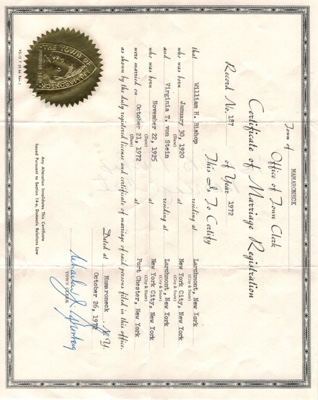 Town of MAMARONECK
Office of Town Clerk
Certificate of Marriage Registration
Record No. 187 of Year 1972
This Is To Certify
that William H. Bishop residing at Larchmont, New York
(City & State)
who was born January 30, 1920 at New York City, New York
(Date) (City & State)
and Virginia T. von Stein residing at Larchmont, New York
(City & State)
who was born November 22, 1925 at New York City, New York
(Date) (City & State)
were married on October 21, 1972 at Port Chester, New York
(Date)
as shown by the duly registered license and certificate of marriage of such persons filed in this office.
Dated at Mamaroneck N.Y.
October 26, 1972
TOWN CLERK
Any Alteration Invalidates This Certificate
Issued Pursuant to Section 14-a, Domestic Relations Law